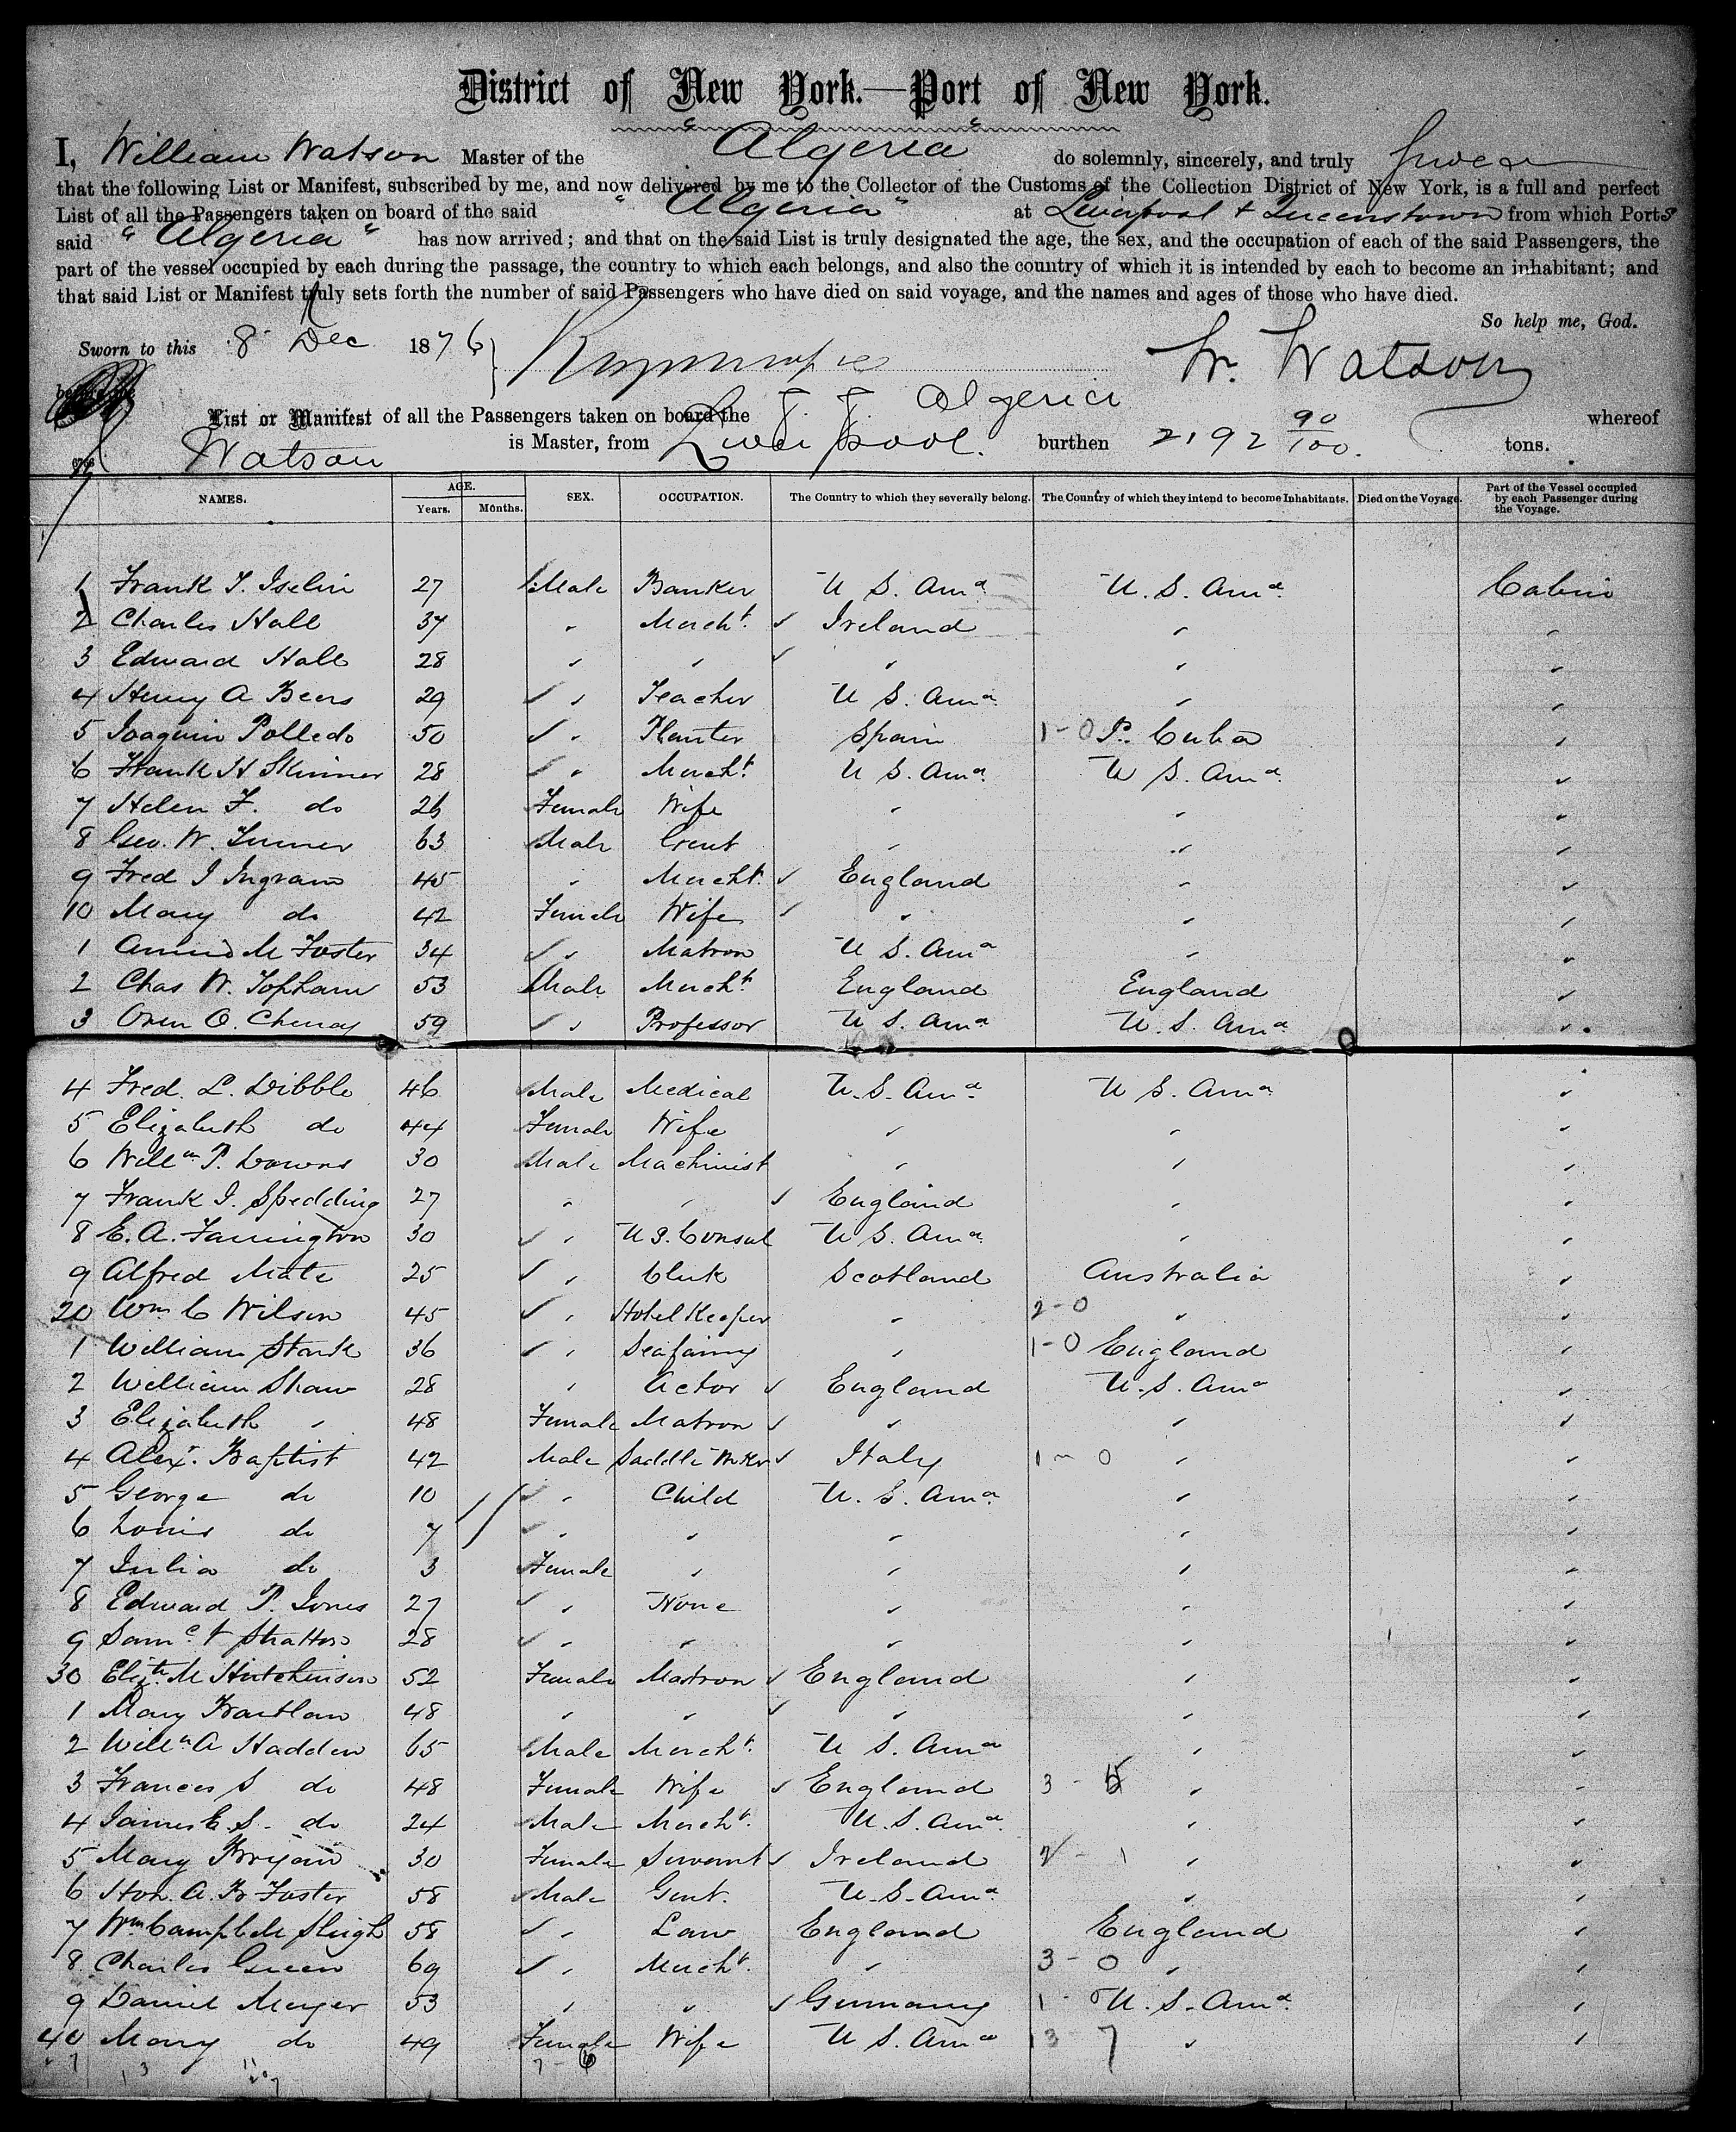 District of New York.—Port of New York.
I, William Watson Master of the Algeria do solemnly, sincerely, and truly Swear
that the following List or Manifest, subscribed by me, and now delivered by me to the Collector of the Customs of the Collection District of New York, is a full and perfect
List of all the Passengers taken on board of the said "Algeria" at Liverpool + Queenstown from which Ports
said "Algeria" has now arrived; and that on the said List is truly designated the age, the sex, and the occupation of each of the said Passengers, the
part of the vessel occupied by each during the passage, the country to which each belongs, and also the country of which it is intended by each to become an inhabitant; and
that said List or Manifest truly sets forth the number of said Passengers who have died on said voyage, and the names and ages of those who have died.
So help me, God.
Sworn to this 8 Dec 1876 W. Watson
List or Manifest of all the Passengers taken on board the S. S. Algeria whereof
Watson is Master, from Liverpool. burthen 2192 90/100. tons.
NAMES. AGE. Years. Months. SEX. OCCUPATION. The Country to which they severally belong. The Country of which they intend to become Inhabitants. Died on the Voyage. Part of the Vessel occupied by each Passenger during the Voyage.
1 Frank T. Iselin 27 Male Banker U S. Ama U. S. Ama Cabin
2 Charles Hall 37 " Mercht. Ireland " "
3 Edward Hall 28 " " " " "
4 Henry A Beers 29 " Teacher U S. Ama " "
5 Joaquin Polledo 50 " Planter Spain 1-0 Cuba "
6 Frank H Skinner 28 " Mercht. U S. Ama U S. Ama "
7 Helen F. do 26 Female Wife " " "
8 Geo. W. Turner 63 Male Gent " " "
9 Fred J Ingram 45 " Mercht. England " "
10 Mary do 42 Female Wife " " "
1 M Foster 34 " Matron U S. Ama " "
2 Chas W. Topham 53 Male Mercht. England England "
3 Oren O. Cheney 59 " Professor U S. Ama U. S. Ama "
4 Fred. L. Dibble 46 Male Medical U. S. Ama U S. Ama "
5 Elizabeth do 44 Female Wife " " "
6 Willm P. Downs 30 Male Machinist " " "
7 Frank J. Spedding 27 " " England " "
8 E. A. Farrington 30 " U S. Consul U S. Ama " "
9 Alfred Mate 25 " Clerk Scotland Australia "
20 Wm C Wilson 45 " Hotel Keeper " 2-0 " "
1 William Stark 36 " Seafaring " 1-0 England "
2 William Shaw 28 " Actor England U. S. Ama "
3 Elizabeth " 48 Female Matron " " "
4 Alexr. Baptist 42 Male Saddle Mkr Italy 1-0 " "
5 George do 10 " Child U. S. Ama " "
6 Louis do 7 " " " " "
7 Julia do 3 Female " " " "
8 Edward P. Jones 27 " None " " "
9 Saml. Stratton 28 " " " " "
30 Elizth. M Hutchinson 52 Female Matron England " "
1 Mary 48 " " " " "
2 Willm A Hadden 65 Male Mercht. U S. Ama " "
3 Frances S do 48 Female Wife England 3- " "
4 James E. S. do 24 Male Mercht. U. S. Ama " "
5 Mary Bryan 30 Female Servant Ireland 2-1 " "
6 Hon. A. Foster 58 Male Gent. U. S. Ama " "
7 Wm Campbell Sleigh 58 " Law England England "
8 Charles Green 69 " Mercht. " 3-0 " "
9 Daniel Meyer 53 " " Germany 1-0 U. S. Ama "
40 Mary do 49 Female Wife U S. Ama 13 7 " "